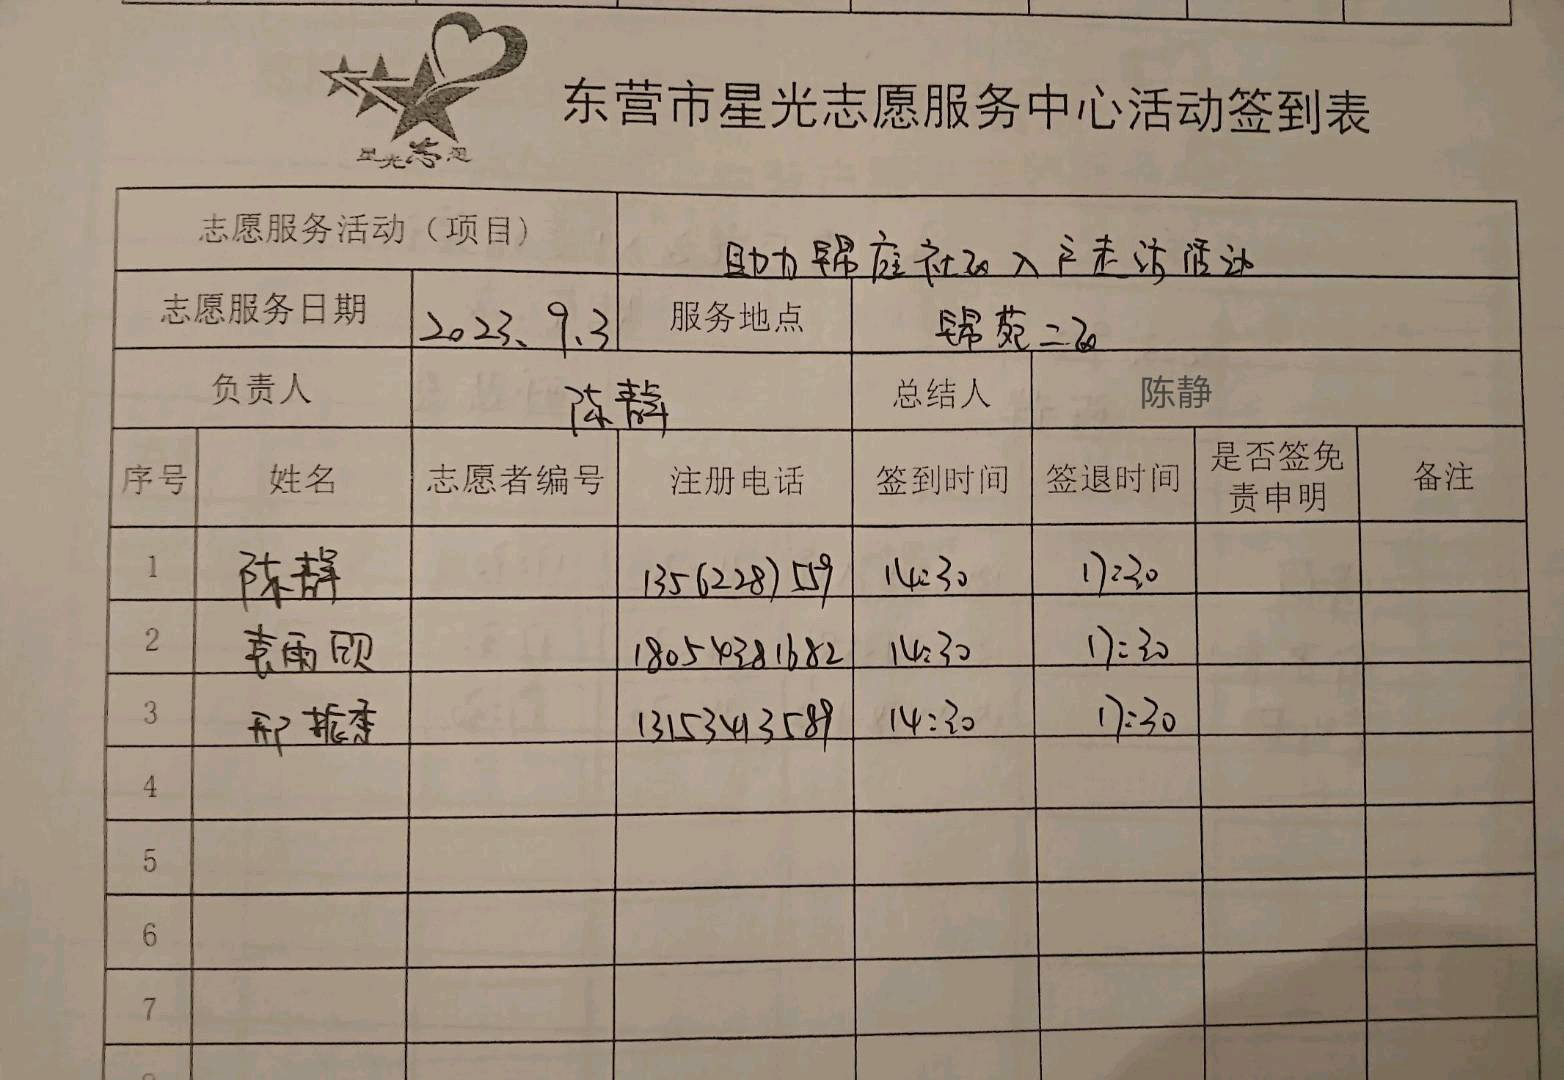 星光志愿
东营市星光志愿服务中心活动签到表
志愿服务活动（项目） 助力锦庭社区入户走访活动
志愿服务日期 2023、9、3 服务地点 锦苑二区
负责人 陈静 总结人 陈静
序号 姓名 志愿者编号 注册电话 签到时间 签退时间 是否签免责申明 备注
1 陈静 13562287559 14:30 17:30
2 袁雨欣 18054381682 14:30 17:30
3 邢 13153413589 14:30 17:30
4
5
6
7